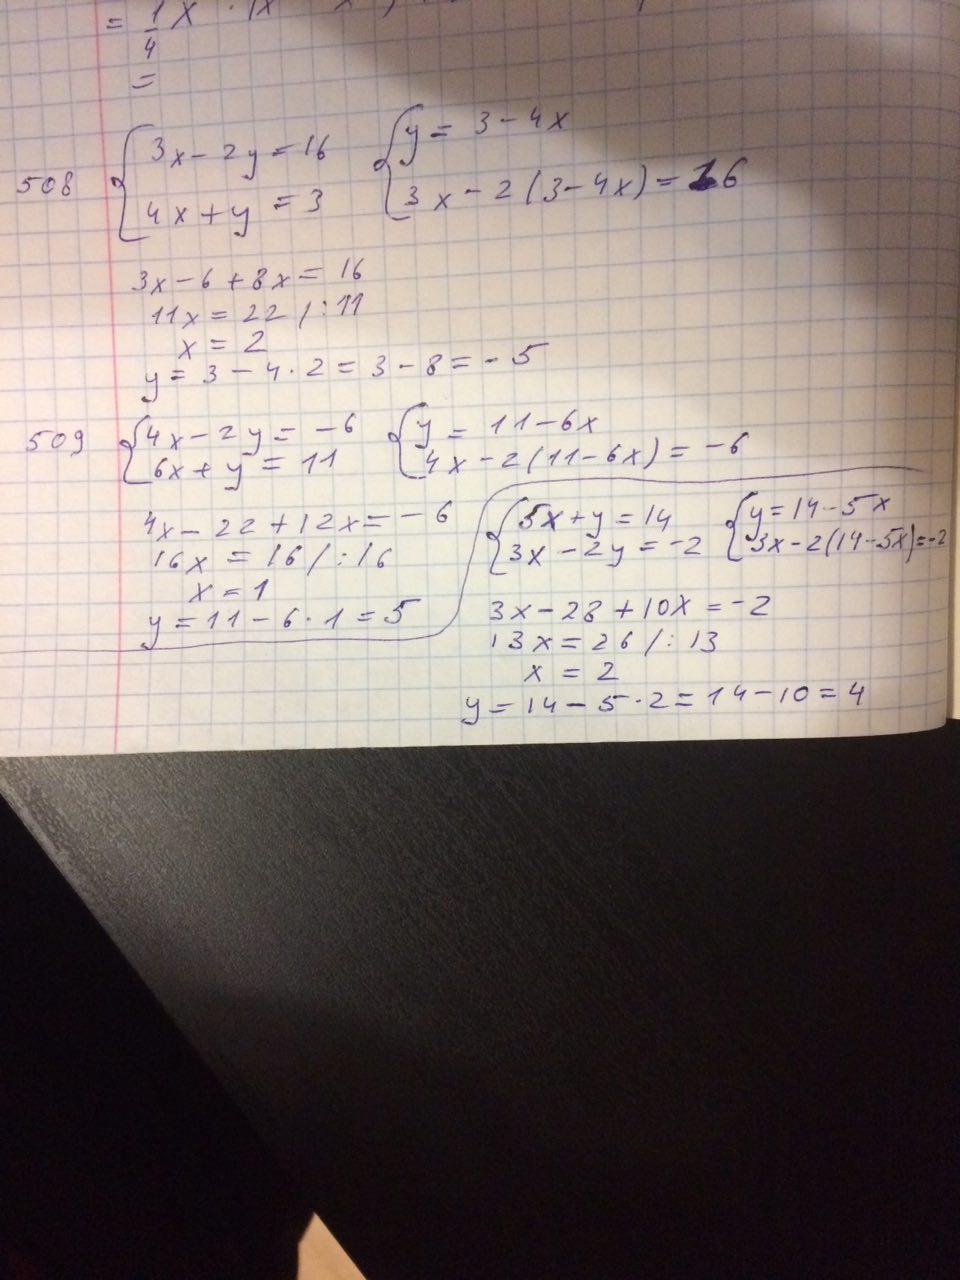 = 1/4 x
=
508 { 3x - 2y = 16 { y = 3 - 4x
4x + y = 3 3x - 2(3 - 4x) = 16
3x - 6 + 8x = 16
11x = 22 /: 11
x = 2
y = 3 - 4 · 2 = 3 - 8 = - 5
509 { 4x - 2y = -6 { y = 11 - 6x
6x + y = 11 4x - 2(11 - 6x) = -6
4x - 22 + 12x = - 6
16x = 16 /: 16
x = 1
y = 11 - 6 · 1 = 5
{ 5x + y = 14 { y = 14 - 5x
3x - 2y = -2 3x - 2(14 - 5x) = -2
3x - 28 + 10x = -2
13x = 26 /: 13
x = 2
y = 14 - 5 · 2 = 14 - 10 = 4